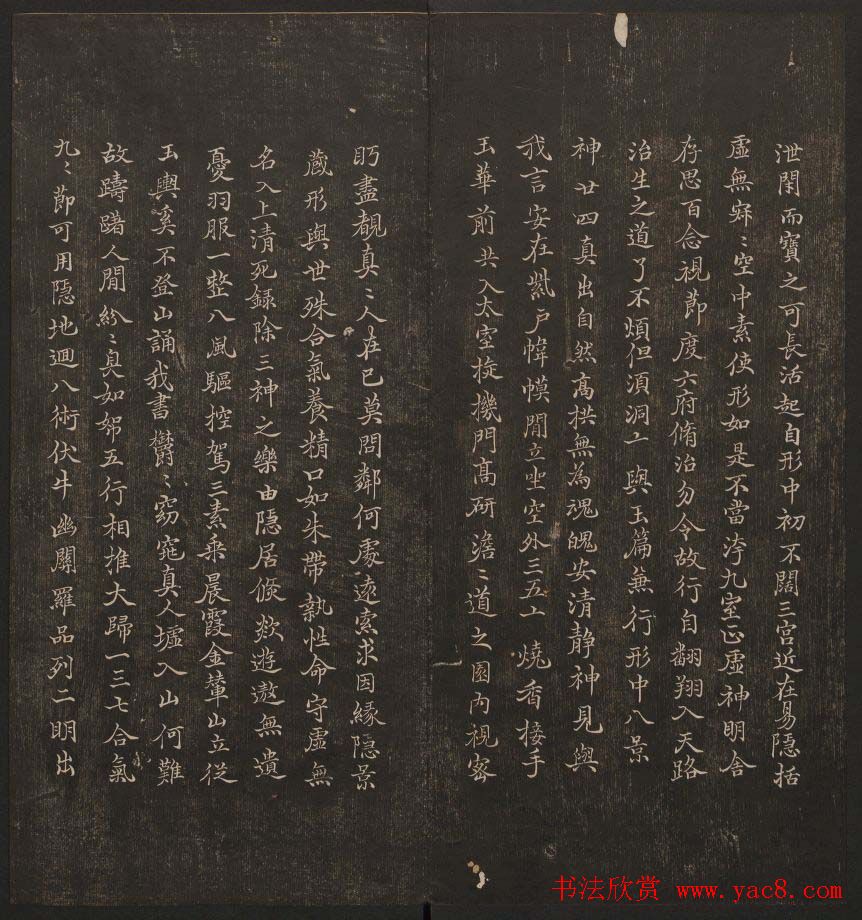 泄閇而寶之可長活起自形中初不闊三宮近在易隱括
虛無寂〻空中素使形如是不當汙九室正虛神明舍
存思百念視節度六府脩治勿令故行自翱翔入天路
治生之道了不煩但湏洞亠與玉篇兼行形中八景
神廿四真出自然髙拱無為魂魄安清静神見與
我言安在紫戶幃幙閒立坐空外三五亠燒香接手
玉華前共入太室㻽機門髙研澹〻道之園內視密
眄盡覩真〻人在已莫問鄰何處遠索求因緣隱景
蔵形與世殊合氣養精口如朱帶執性命守虛無
名入上清死録除三神之樂由隱居倐欻遊遨無遺
憂羽服一整八風驅控駕三素乘晨霞金輦山立從
玉輿奚不登山誦我書欝〻窈窕真人墟入山何難
故躊躇人閒紛〻臭如帤五行相推大歸一三七合氣
九〻節可用隱地迴八術伏牛幽闕羅品列二明出
书法欣赏 www.yac8.com